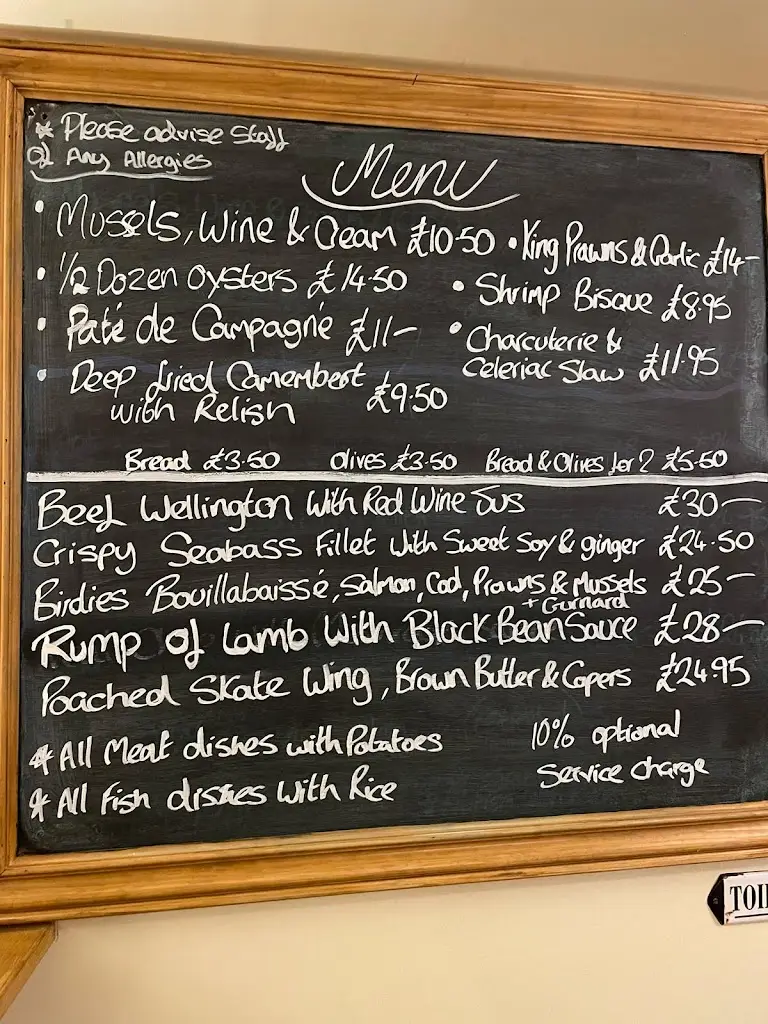 * Please advise Staff
of Any Allergies
Menu
• Mussels, Wine & Cream £10·50
• King Prawns & Garlic £14-
• 1/2 Dozen oysters £14·50
• Shrimp Bisque £8·95
• Paté de Campagné £11-
• Charcuterie &
Celeriac Slaw £11·95
• Deep fried Camembert
with Relish £9·50
Bread £3·50 Olives £3·50 Bread & Olives for 2 £5·50
Beef Wellington With Red Wine Jus £30-
Crispy Seabass Fillet With Sweet Soy & ginger £24·50
Birdies Bouillabaissé, Salmon, Cod, Prawns & Mussels £25-
+ Gurnard
Rump of Lamb With Black Bean Sauce £28-
Poached Skate Wing, Brown Butter & Capers £24·95
* All Meat dishes with Potatoes
* All Fish dishes With Rice
10% optional
Service charge
TOI